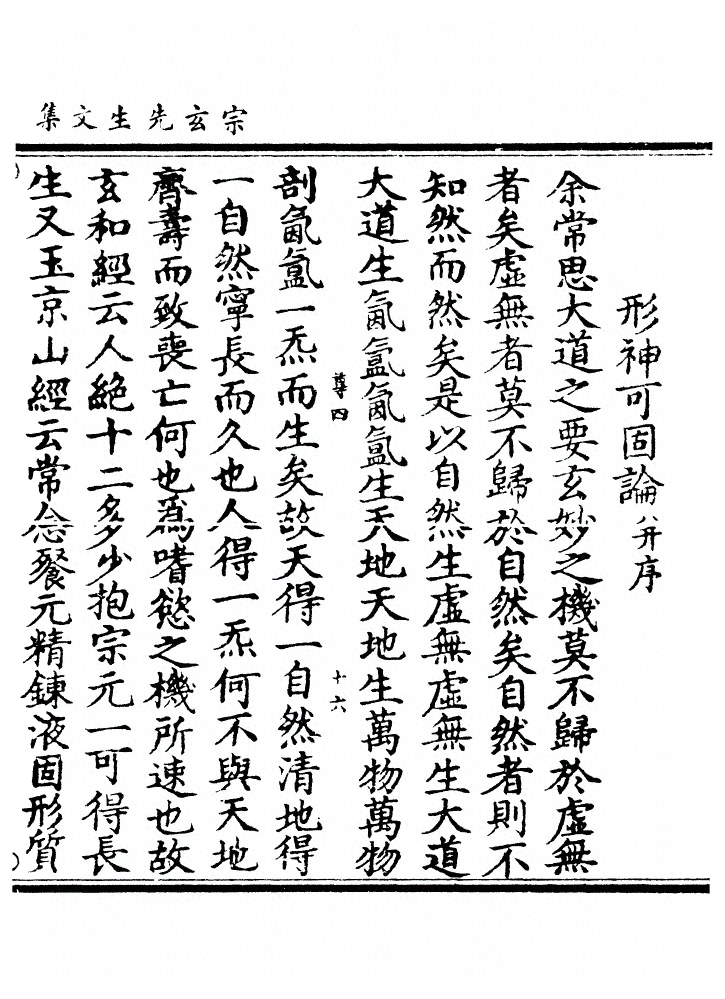 宗玄先生文集
形神可固論并序
余常思大道之要玄妙之機莫不歸於虛無
者矣虛無者莫不歸於自然矣自然者則不
知然而然矣是以自然生虛無虛無生大道
大道生氤氳氤氳生天地天地生萬物萬物
尊四
十六
剖氤氳一炁而生矣故天得一自然清地得
一自然寧長而久也人得一炁何不與天地
齊壽而致喪亡何也爲嗜慾之機所速也故
玄和經云人絕十二多少抱宗元一可得長
生又玉京山經云常念餐元精鍊液固形質